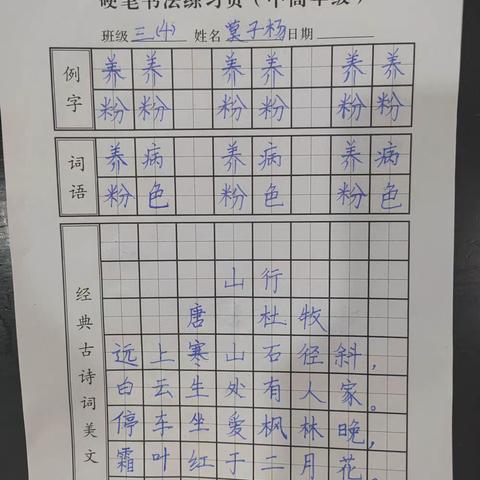 硬笔书法练习页（中高年级）
班级 三(4) 姓名 子杨 日期
例字
养 养 养 养 养 养
粉 粉 粉 粉 粉 粉
词语
养 病 养 病 养 病
粉 色 粉 色 粉 色
经典古诗词美文
山 行
唐 杜 牧
远上寒山石径斜，
白云生处有人家。
停车坐爱枫林晚，
霜叶红于二月花。